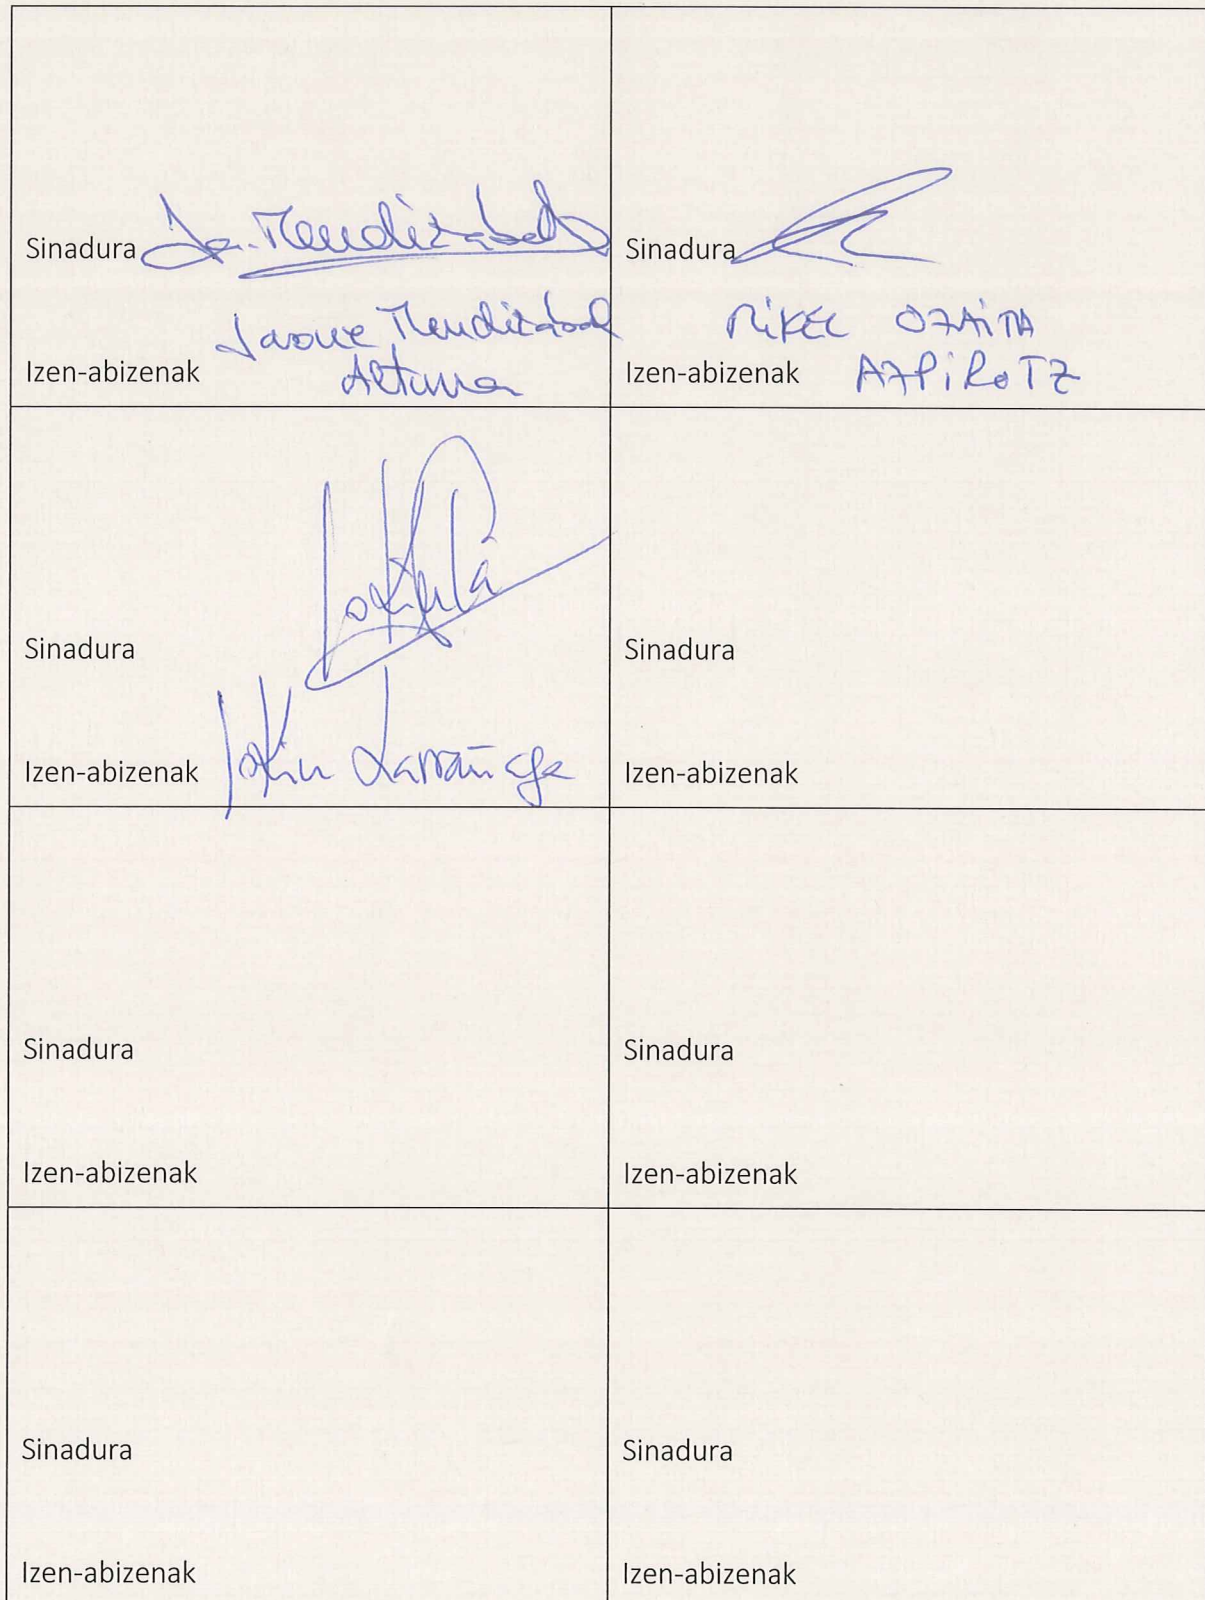 Sinadura Ja. Mendizabal
Jaone Mendizabal
Izen-abizenak Altuna
Sinadura
MIKEL OZAITA
Izen-abizenak AZPIROTZ
Sinadura
Izen-abizenak Jokin Larrañaga
Sinadura
Izen-abizenak
Sinadura
Izen-abizenak
Sinadura
Izen-abizenak
Sinadura
Izen-abizenak
Sinadura
Izen-abizenak